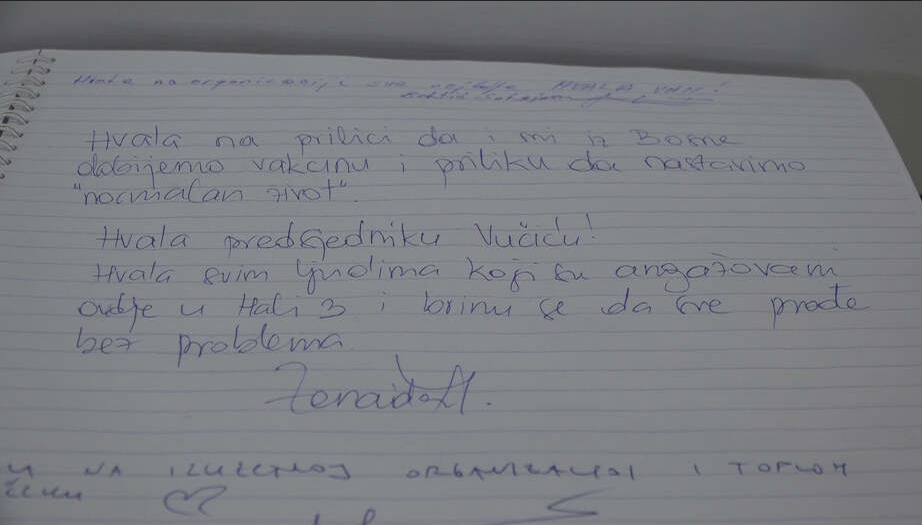 Hvala na organizaciji sve najbolje HVALA VAM!
Hvala na prilici da i mi iz Bosne
dobijemo vakcinu i priliku da nastavimo
"normalan život".
Hvala predsjedniku Vučiću!
Hvala svim ljudima koji su angažovani
ovdje u Hali 3 i brinu se da sve prođe
bez problema
Zenaida H.
NA IZUZETNOJ ORGANIZACIJI I TOPLOM